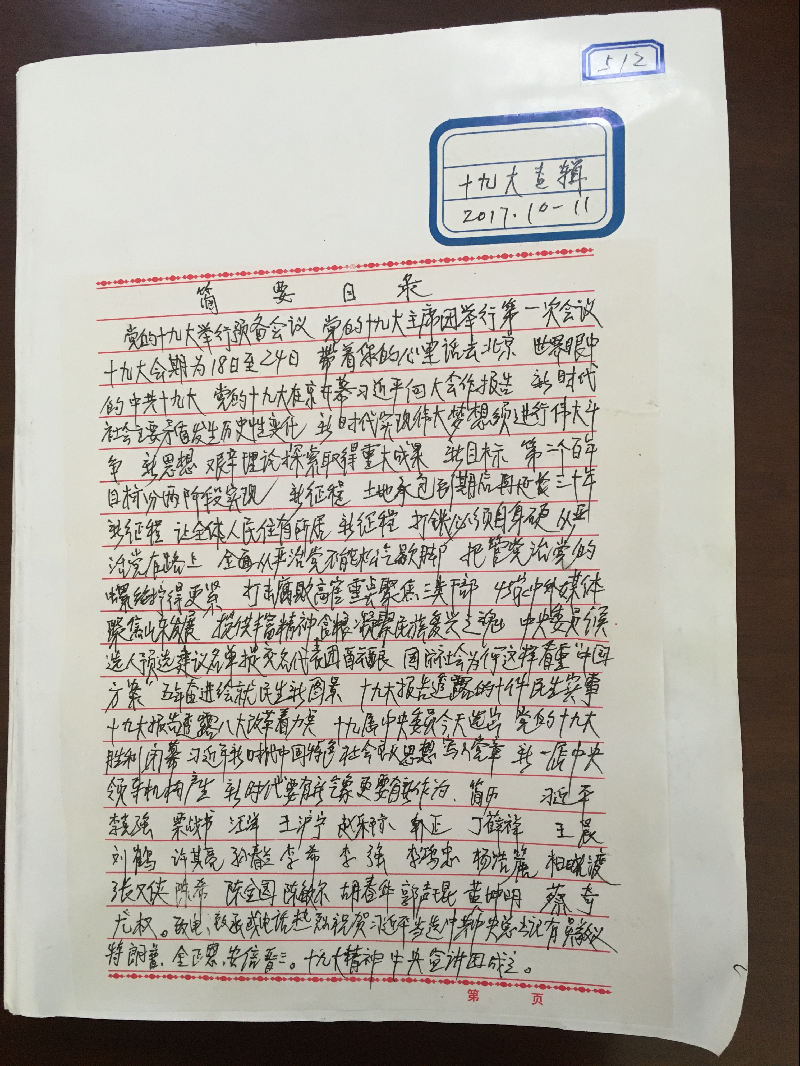 512
十九大专辑
2017.10-11
简要目录
党的十九大举行预备会议 党的十九大主席团举行第一次会议
十九大会期为18日至24日 带着你的心里话去北京 世界眼中
的中共十九大 党的十九大在京开幕习近平向大会作报告 新时代
社会主要矛盾发生历史性变化 新时代实现伟大梦想须进行伟大斗
争 新思想 艰辛理论探索取得重大成果 新目标 第二个百年
目标分两阶段实现 新征程 土地承包到期后再延长三十年
新征程 让全体人民住有所居 新征程 打铁必须自身硬 从严
治党在路上 全面从严治党不能松劲歇脚 把管党治党的
螺丝拧得更紧 打击腐败高官重点聚焦三类干部 45家中外媒体
聚焦山东发展 提供丰富精神食粮凝聚民族复兴之魂 中央委员候
选人预选建议名单提交各代表团酝酿 国际社会为何这样看重“中国
方案” 五年奋进绘就民生新图景 十九大报告透露的十件民生实事
十九大报告透露八大改革着力点 十九届中央委员今天选出 党的十九大
胜利闭幕 习近平新时代中国特色社会主义思想写入党章 新一届中央
领导机构产生 新时代要有新气象更要有新作为 简历 习近平
李克强 栗战书 汪洋 王沪宁 赵乐际 韩正 丁薛祥 王晨
刘鹤 许其亮 孙春兰 李希 李强 李鸿忠 杨洁篪 杨晓渡
张又侠 陈希 陈全国 陈敏尔 胡春华 郭声琨 黄坤明 蔡奇
尤权。致电、致函或电话热烈祝贺习近平当选中共中央总书记有
特朗普、金正恩、安倍晋三。十九大精神中央宣讲团成立。
第 页